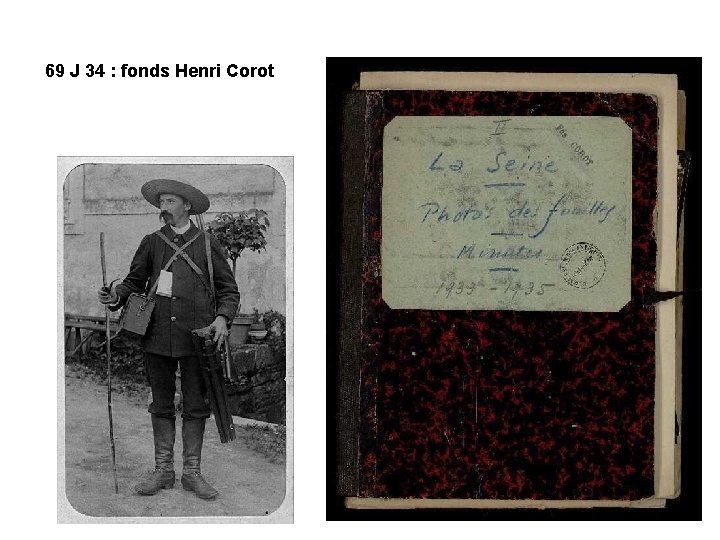 69 J 34 : fonds Henri Corot
II
Fds COROT
La Seine
Photos des fouilles
Minutes
1933 - 1935